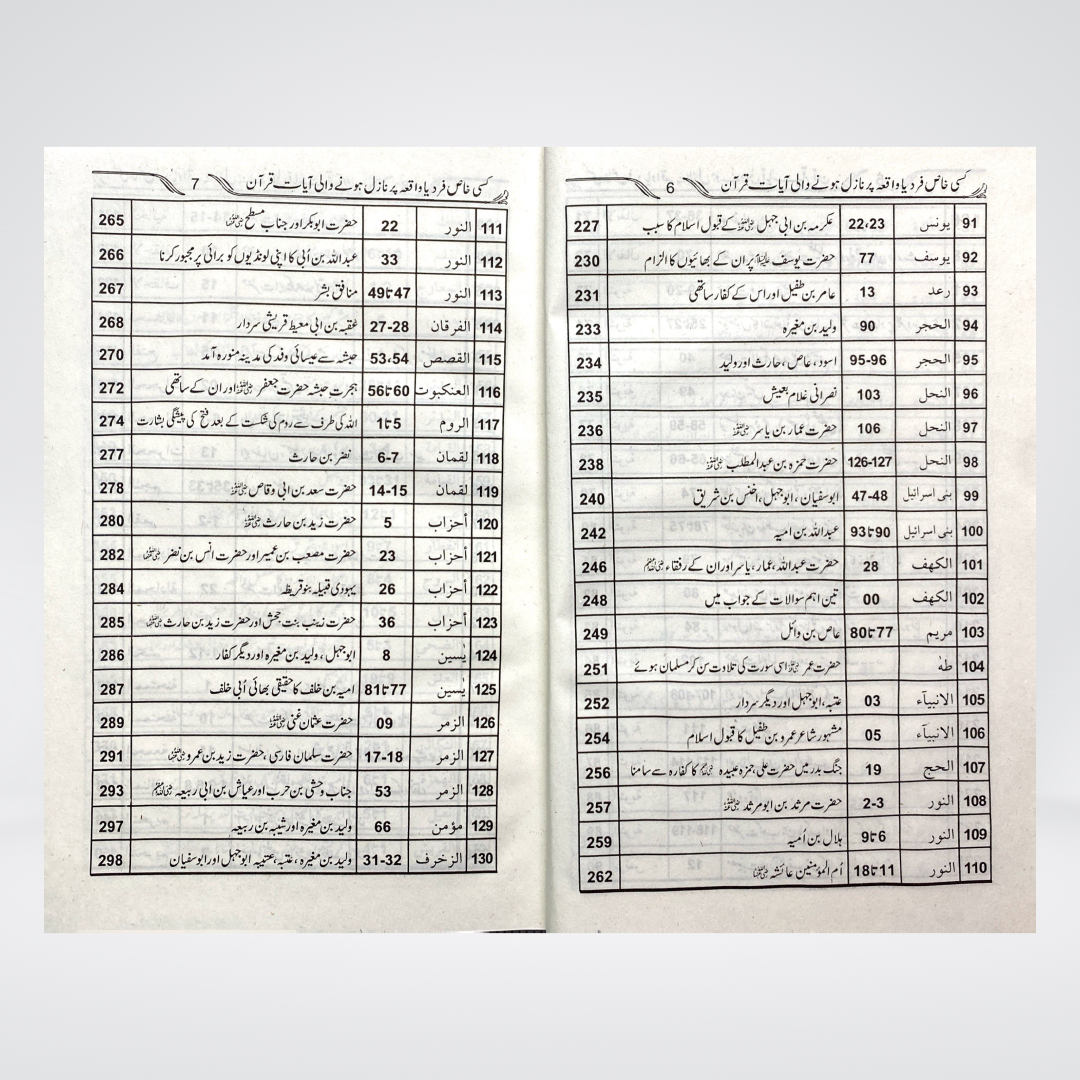 کسی خاص فرد یا واقعہ پر نازل ہونے والی آیات قرآن 6
91 یونس 22،23 عکرمہ بن ابی جہل رضی اللہ عنہ کے قبول اسلام کا سبب 227
92 یوسف 77 حضرت یوسف علیہ السلام پر ان کے بھائیوں کا الزام 230
93 رعد 13 عامر بن طفیل اور اس کے کفار ساتھی 231
94 الحجر 90 ولید بن مغیرہ 233
95 الحجر 95-96 اسود، عاص، حارث اور ولید 234
96 النحل 103 نصرانی غلام یعیش 235
97 النحل 106 حضرت عمار بن یاسر رضی اللہ عنہ 236
98 النحل 126-127 حضرت حمزہ بن عبدالمطلب رضی اللہ عنہ 238
99 بنی اسرائیل 47-48 ابوسفیان، ابوجہل، اخنس بن شریق 240
100 بنی اسرائیل 90تا93 عبداللہ بن امیہ 242
101 الکھف 28 حضرت عبداللہ، عمار، یاسر اور ان کے رفقاء رضی اللہ عنہم 246
102 الکھف 00 تین اہم سوالات کے جواب میں 248
103 مریم 77تا80 عاص بن وائل 249
104 طہٰ حضرت عمر رضی اللہ عنہ اسی سورت کی تلاوت سن کر مسلمان ہوئے 251
105 الانبیآء 03 عتبہ، ابوجہل اور دیگر سردار 252
106 الانبیآء 05 مشہور شاعر عمرو بن طفیل کا قبول اسلام 254
107 الحج 19 جنگ بدر میں حضرت علی، حمزہ عبیدہ رضی اللہ عنہم کا کفارہ سے سامنا 256
108 النور 2-3 حضرت مرثد بن ابو مرثد رضی اللہ عنہ 257
109 النور 6تا9 ہلال بن اُمیہ 259
110 النور 11تا18 اُم المؤمنین عائشہ رضی اللہ عنہا 262
کسی خاص فرد یا واقعہ پر نازل ہونے والی آیات قرآن 7
111 النور 22 حضرت ابوبکر اور جناب مسطح رضی اللہ عنہما 265
112 النور 33 عبداللہ بن اُبی کا اپنی لونڈیوں کو برائی پر مجبور کرنا 266
113 النور 47تا49 منافق بشر 267
114 الفرقان 27-28 عقبہ بن ابی معیط قریشی سردار 268
115 القصص 53،54 حبشہ سے عیسائی وفد کی مدینہ منورہ آمد 270
116 العنکبوت 60تا56 ہجرت حبشہ حضرت جعفر رضی اللہ عنہ اور ان کے ساتھی 272
117 الروم 5تا1 اللہ کی طرف سے روم کی شکست کے بعد فتح کی پیشگی بشارت 274
118 لقمان 6-7 نضر بن حارث 277
119 لقمان 14-15 حضرت سعد بن ابی وقاص رضی اللہ عنہ 278
120 أحزاب 5 حضرت زید بن حارث رضی اللہ عنہ 280
121 أحزاب 23 حضرت مصعب بن عمیر اور حضرت انس بن نضر رضی اللہ عنہما 282
122 أحزاب 26 یہودی قبیلہ بنو قریظہ 284
123 أحزاب 36 حضرت زینب بنت جحش اور حضرت زید بن حارث رضی اللہ عنہما 285
124 یٰسین 8 ابوجہل، ولید بن مغیرہ اور دیگر کفار 286
125 یٰسین 77تا81 امیہ بن خلف کا حقیقی بھائی اُبی خلف 287
126 الزمر 09 حضرت عثمان غنی رضی اللہ عنہ 289
127 الزمر 17-18 حضرت سلمان فارسی، حضرت زید بن عمرو رضی اللہ عنہما 291
128 الزمر 53 جناب وحشی بن حرب اور عیاش بن ابی ربیعہ رضی اللہ عنہم 293
129 مؤمن 66 ولید بن مغیرہ اور شیبہ بن ربیعہ 297
130 الزخرف 31-32 ولید بن مغیرہ، عتبہ، عتیبہ ابوجہل اور ابوسفیان 298